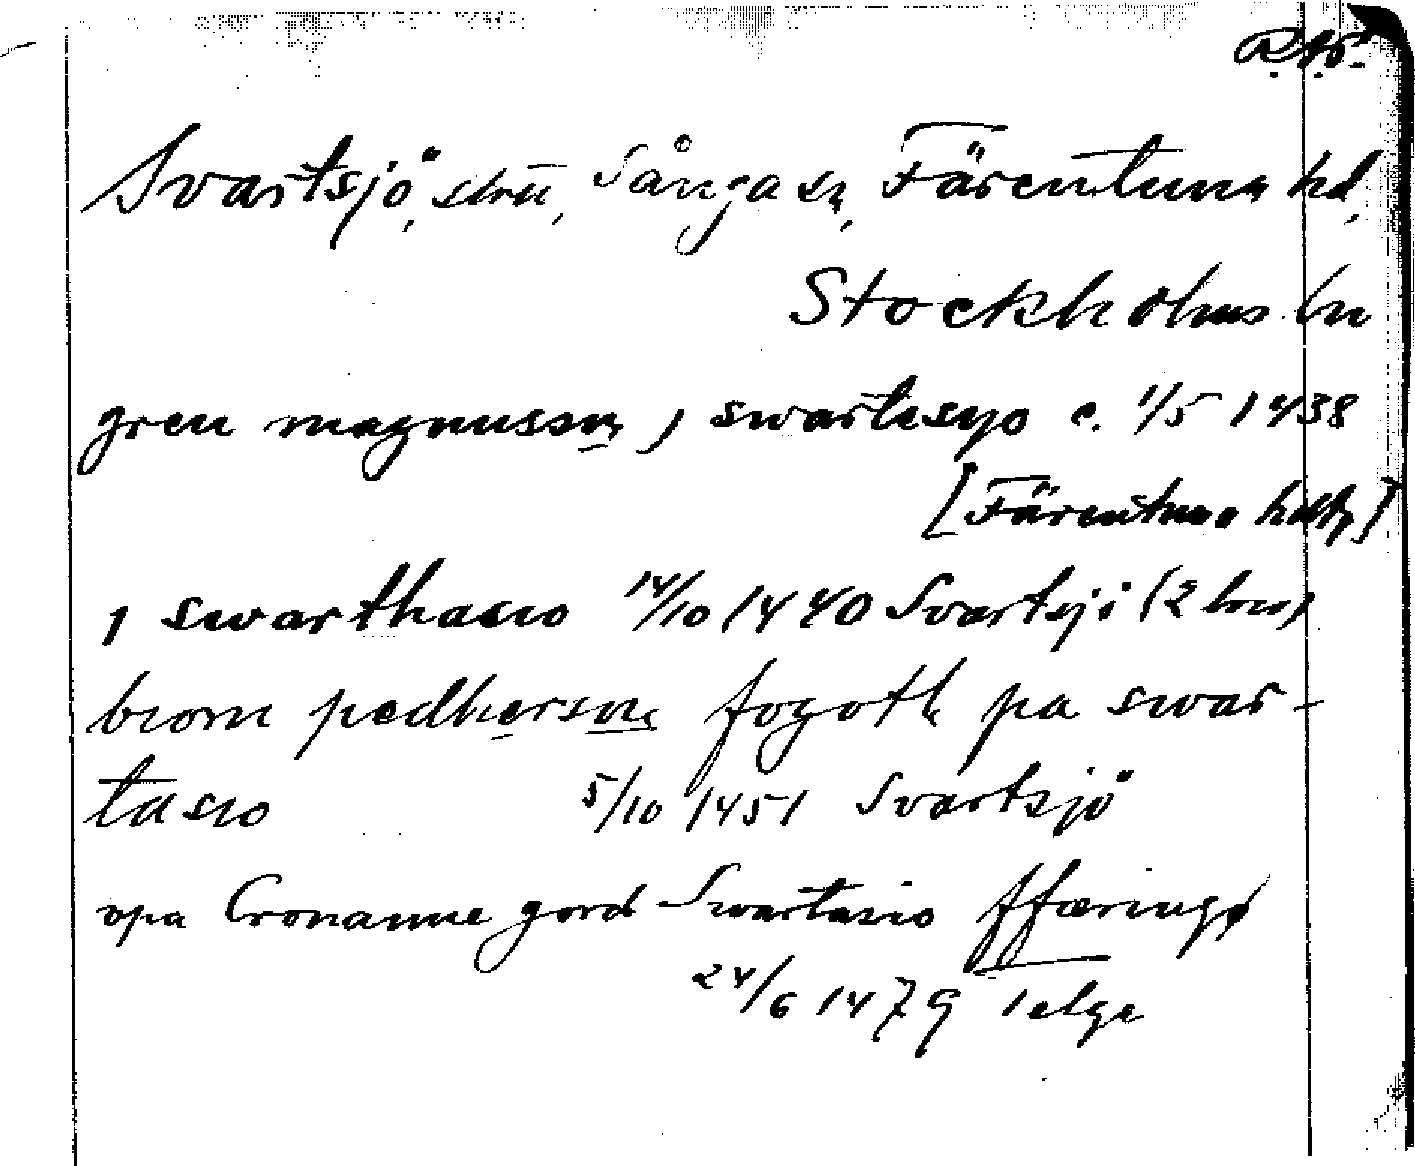 Svartsjö, Sånga sn, Färentuna hd,
Stockholms ln
greu magnusson, j swartesyo c. 1/5 1438
[Färentuna hdtg]
j swarthasio 14/10 1440 Svartsjö (2 brev)
biorn pedherson fogoth pa swar-
tasio 5/10 1451 Svartsjö
opa Cronanne gord Swartasio ffæringø
24/6 1479 Telge